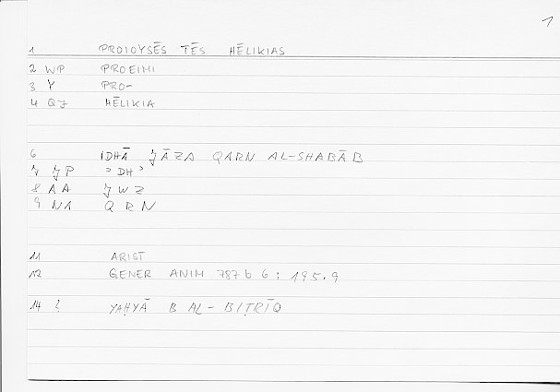 1
1 PROIOYSĒS TĒS HĒLIKIAS
2 WP PROEIMI
3 Y PRO-
4 QJ HĒLIKIA
6 IDHĀ ǦĀZA QARN AL-SHABĀB
7 ǦP ʾDHʾ
8 AA ǦWZ
9 NA QRN
11 ARIST
12 GENER ANIM 787 b 6 : 195.9
14 YAḤYĀ B AL-BIṬRĪQ